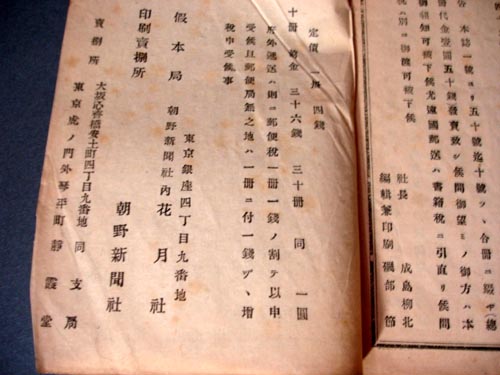 告 本誌一號ヨリ五十號迄十號ヅヽ合冊ニ綴せ(總
冊代金壹圓五十錢發賣致シ候間御望ミノ御方ハ本
局ヘ御報知可被下候尤遠國郵送ハ書籍税ニ引直リ候間
別ニ御遣可被下候
社長 成島柳北
編輯兼印刷 磯部節
定價 一冊 四錢
十冊 前金 三十六錢 三十冊 同 一圓
府外遞送ハ則ニ郵便税一冊一錢ノ割テ以申
受候且郵便局無之地ハ一冊ニ付一錢ヅヽ増
税申受候事
東京銀座四丁目九番地
假本局 朝野新聞社内 花月社
印刷賣捌所 朝野新聞社
大坂心斎橋安土町四丁目九番地 同支局
賣捌所 東京虎ノ門外琴平町 靜霞堂